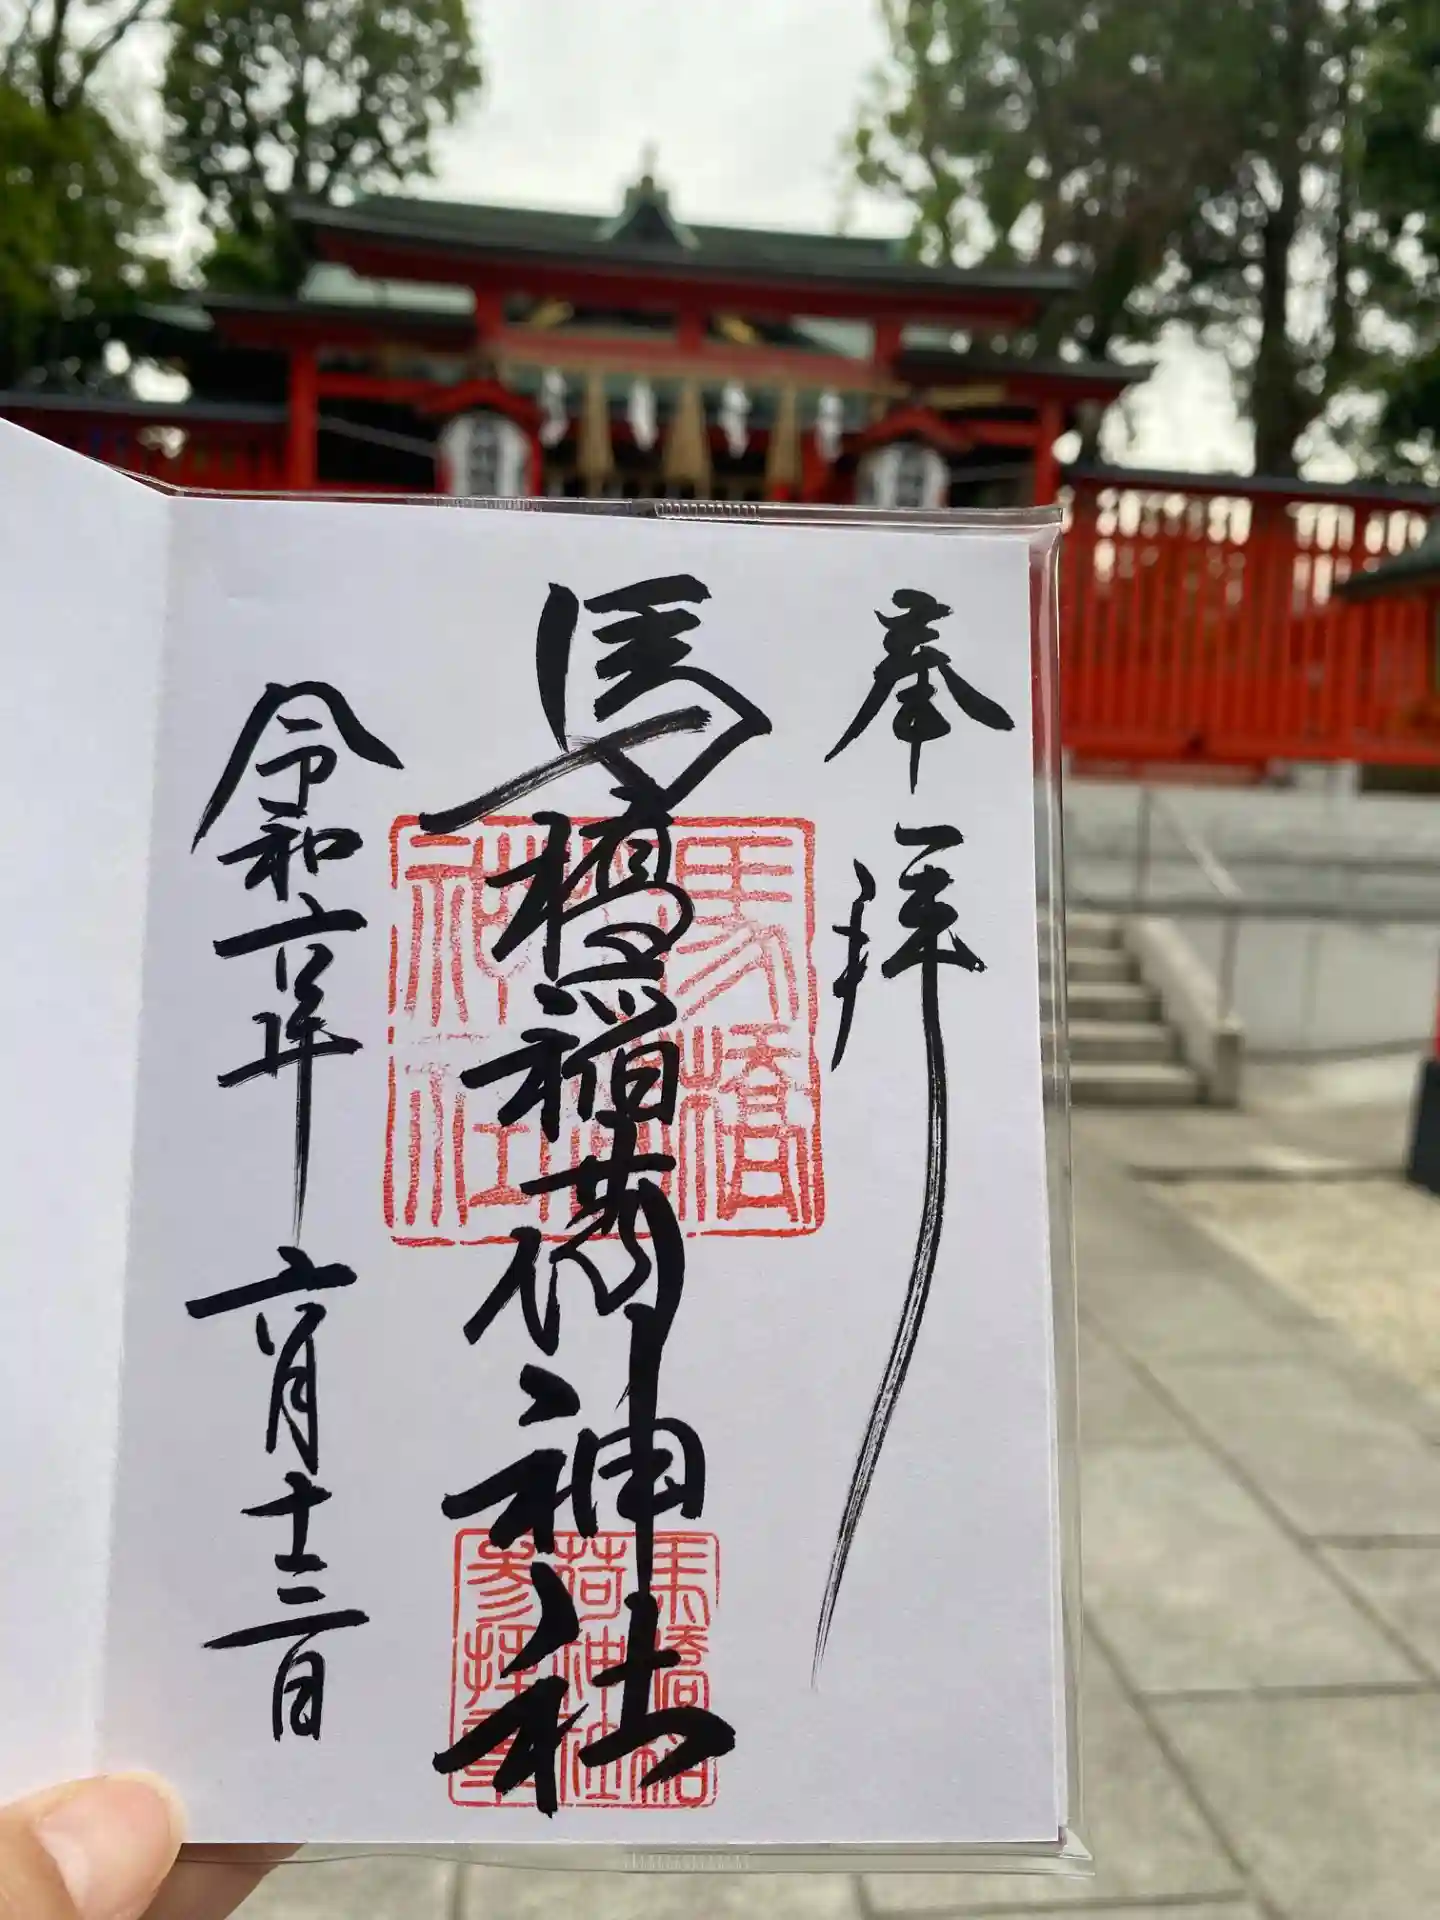 奉拝
馬橋稲荷神社
令和六年 六月十二日
馬橋
神社
馬橋稲
荷神社
参拝章